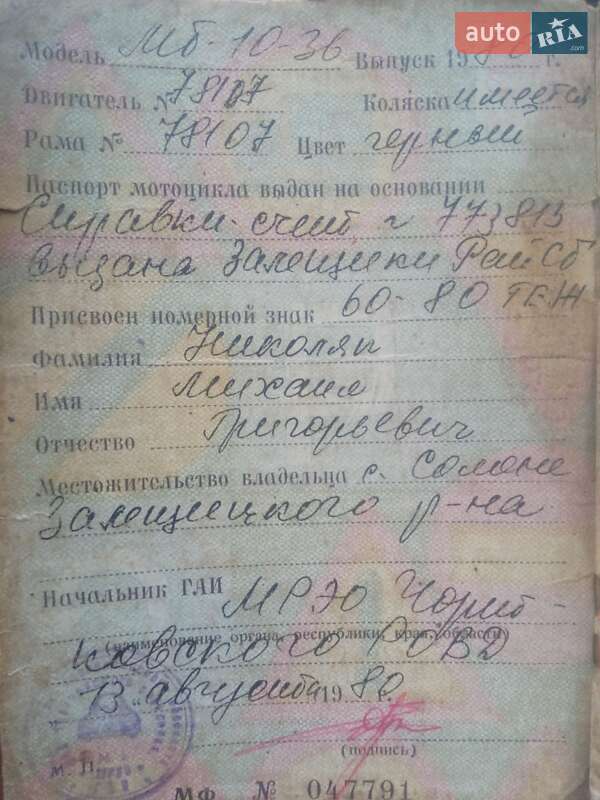 auto RIA .com
Модель МБ 1036 Выпуск 19 г.
Двигатель № 78107 Коляска имеется
Рама № 78107 Цвет черный
Паспорт мотоцикла выдан на основании
Справки-счет 773815
выдана Залещики Рай
Присвоен номерной знак 60-80 ТЕЖ
Фамилия
Имя Михаил
Отчество Григорьевич
Местожительство владельца с. Солоне
Залещицкого р-на
Начальник ГАИ МРЭО Чорт-
(наименование органа, республики, края, области)
ковского РОВД
13 августа 1980 г.
(подпись)
М. П.
МФ № 047791